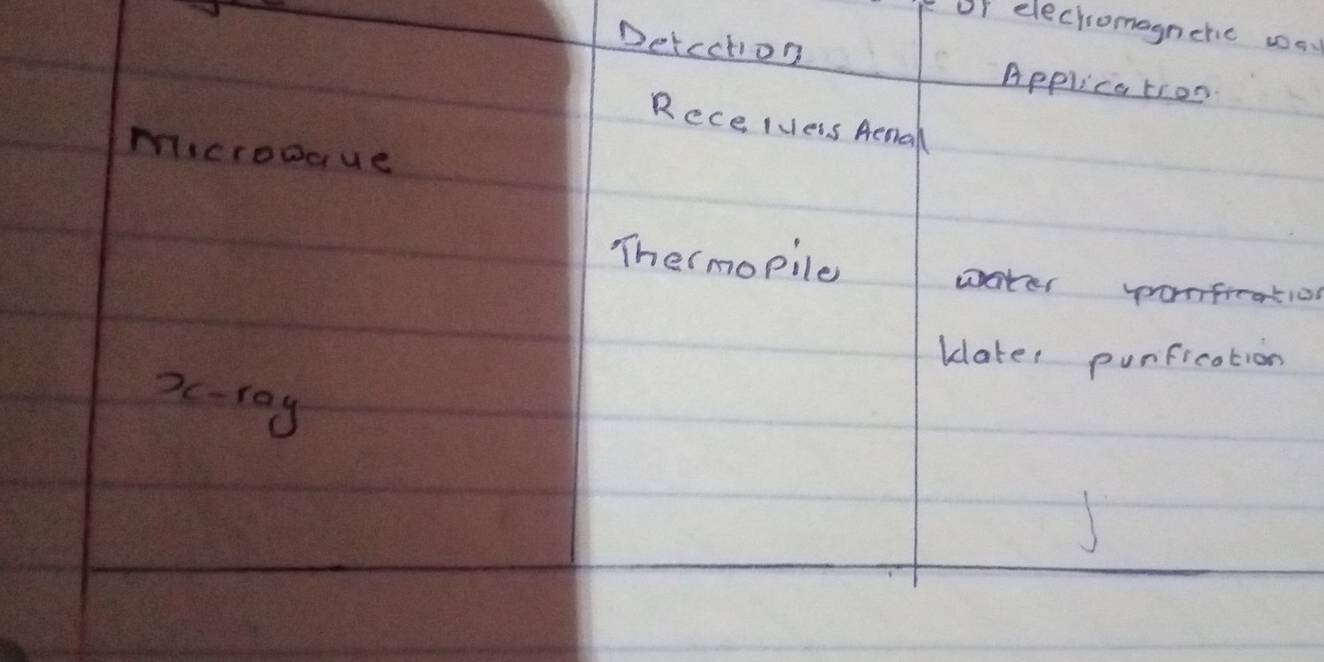 of electromagnetic wav
Detection Application
Receivers Aerial
Microwave
Thermopile water purification
Water purification
x-ray